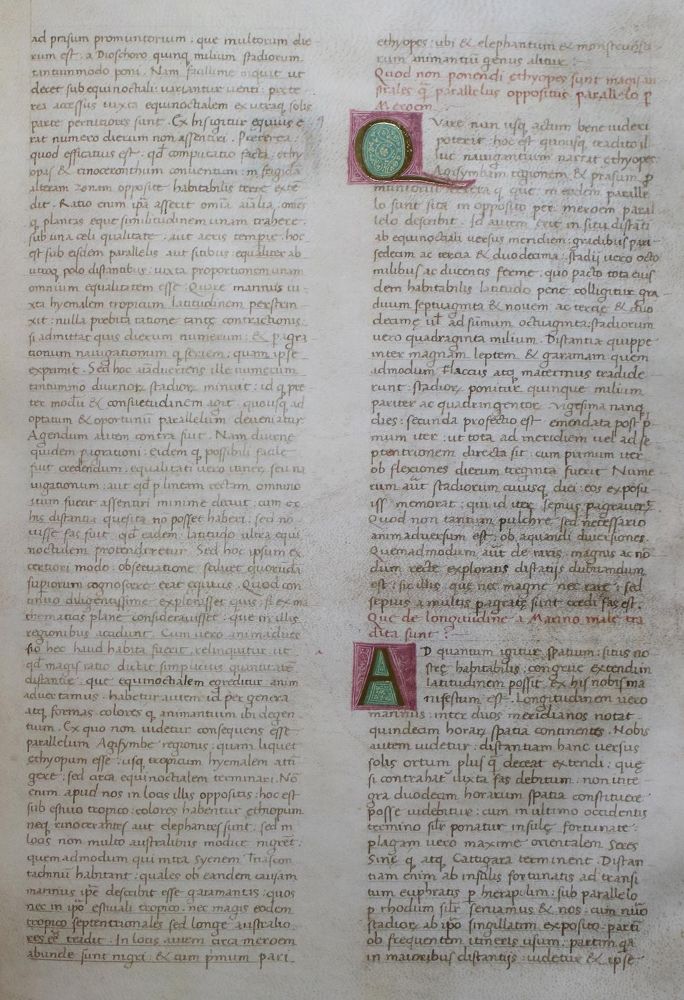 ad prasum promuntorium : que multorum die
rum est . a Dioschoro quinq milium stadiorum
tantummodo poni . Nam facillime inquit ut
decet sub equinoctiali : variantur venti : prete
rea accessus iuxta equinoctialem ex utraq solis
parte perniciores sunt . Ex his igitur equius e
rat numero dierum non assentiri . Preterea
quod efficatius est . qd computatio facta : ethy
opas & rinoceronthum conventum : in frigida
alteram zonam opposite habitabilis terre exte
dit . Ratio enim ipa asserit omia aialia . omes
q plantas eque similitudinem unam trahere
sub una celi qualitate . aut aeris temperie . hoc
est sub eisdem parallelis aut sitibus equaliter ab
utroq polo distantibus : iuxta proportionem unam
omnium equalitatem esse . Quare marinus iu
xta hyemalem tropicum latitudinem perstrin
xit : nulla prebita ratione tante contractionis
si admittat quis dierum numerum : & pagra
tionum navigationum q seriem . quam ipse
expromit . Sed hoc aiadvertens ille numerum
tantummo diurnor stadior minuit : id q pre
ter modum & consuetudinem agit . quousq ad
optatum & oportunum parallelum deveniatur
Agendum autem contra fuit . Nam diurne
quidem pagrationi : eidem q possibili facile
fuit credendum : equalitati vero itineris . seu na
vigationum : aut qd p lineam rectam omnino
itum fuerit assentiri minime decuit . cum ex
his distantia quesita no posset haberi . sed no
visse fas fuit qd eadem latitudo ultra equi
noctialem protenderetur Sed hoc ipsum ex
certiori modo : observatione scilicet quorunda
superiorum cognoscere erat equius . Quod con
tinuo diligentissime explorasset quis : si ex ma
thematicis plane consideravisset : que in illis
regionibus accidunt . Cum vero animadver
sio hec haud habita fuerit . relinquitur ut
qd magis ratio dictat simplicius quantitate
distantie . que equinoctialem egreditur anim
advertamus . habetur autem id per genera
atq formas colores q animantium ibi degen
tium . Ex quo non videtur consequens esse
parallelum Agisymbe regionis : quam liquet
ethyopum esse : usq tropicum hyemalem atti
gere : sed circa equinoctialem terminari . No
enim apud nos in locis illis oppositis : hoc est
sub estivo tropico : colores habentur ethyopum
neq rinocerontes aut elephantes sunt . sed in
locis non multo australibus modice nigret :
quem admodum qui intra Syenem . Triacon
tachinu habitant : quales ob eandem causam
marinus ipe describit esse garamantas : quos
nec in ipo estivali tropico . nec magis eodem
tropico septentrionales sed longe australio
res ee tradit . In locis autem circa meroem
abunde sunt nigri . & cum primum puri
ethyopes : ubi & elephantum & monstruosi
rum animantiu genus alitur :
Quod non ponendi ethyopes sunt magis au
strales q parallelus oppositus parallelo p
Meroem
Quare nun usq actum bene videri
poterit . hoc est quousq tradito il
luc navigantium narrat ethyopes
Agisymbam regionem . & prasum p
muntorium q que in eodem paralle
lo sunt sita in opposito per meroem paral
lelo describit . Id autem erit in situ distanti
ab equinoctiali versus meridiem : gradibus pari
sedecim ac tercia & duodecima : stadii vero octo
milibus ac ducentis ferme . quo pacto tota eius
dem habitabilis latitudo pene colligitur gra
duum septuaginta & novem ac tercie & duo
decime . vel ad sumum octuaginta : stadiorum
vero quadraginta milium . Distantie quippe
inter magnam leptem & garamam quem
admodum Flaccus atq maternus tradide
runt : stadior ponitur quinque milium
pariter ac quadringentor . vigesima nanq
dies : secunda profectio est emendata post p
mum iter . ut tota ad meridiem vel ad se
ptentrionem directa sit : cum primum iter
ob flexiones dierum treginta fuerit Nume
rum aut stadiorum cuiusq diei : eos exposu
isse memorat : qui id iter sepius pagraverut
Quod non tantum pulchre sed necessario
animadversum est : ob aquandi diversiones .
Quemadmodum aut de raris . magnis ac no
dum recte exploratis distatiis dubitandum
est : sic illis que nec magne nec rare : sed
sepius a multis pagrate sunt credi fas est .
Que de longitudine a Marino male tra
dita sunt :
AD quantum igitur spatium : situs no
stre habitabilis : congrue extendium
latitudinem possit . ex his nobis ma
nifestum est . Longitudinem vero
marinus : inter duos meridianos notat
quindecim horar spatia continentes . Nobis
autem videtur : distantiam hanc versus
solis ortum plus q deceat extendi : que
si contrahat iuxta fas debitum : non inte
gra duodecim horarum spatia constituere
posse videbitur : cum in ultimo occidentis
termino silr ponatur insule fortunate .
plagam vero maxime orientalem Seres
Sine q atq Cattigara terminent . Distan
tiam enim ab insulis fortunatis ad transi
tum euphratis p hierapolim : sub parallelo
p rhodum silr servamus & nos : cum nuo
stadior ab ipo singillatim exposito . parti
ob frequentem itineris usum . partim qa
in maioribus distantiis : videtur & ipse